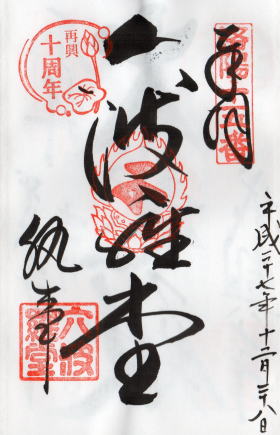 奉拝
洛陽十五番
平成二十七年十二月二十八日
六波羅堂
再興
十周年
執事
六波
羅堂